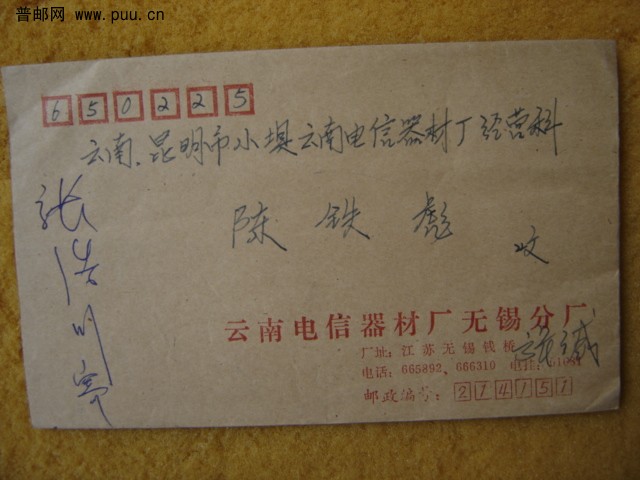 普邮网 www.puu.cn
650225
云南.昆明市小坝云南电信器材厂经营科
陈铁彪 收
云南电信器材厂无锡分厂
厂址:江苏无锡钱桥
电话:665892、666310 电挂:
邮政编号:214151
张浩川寄